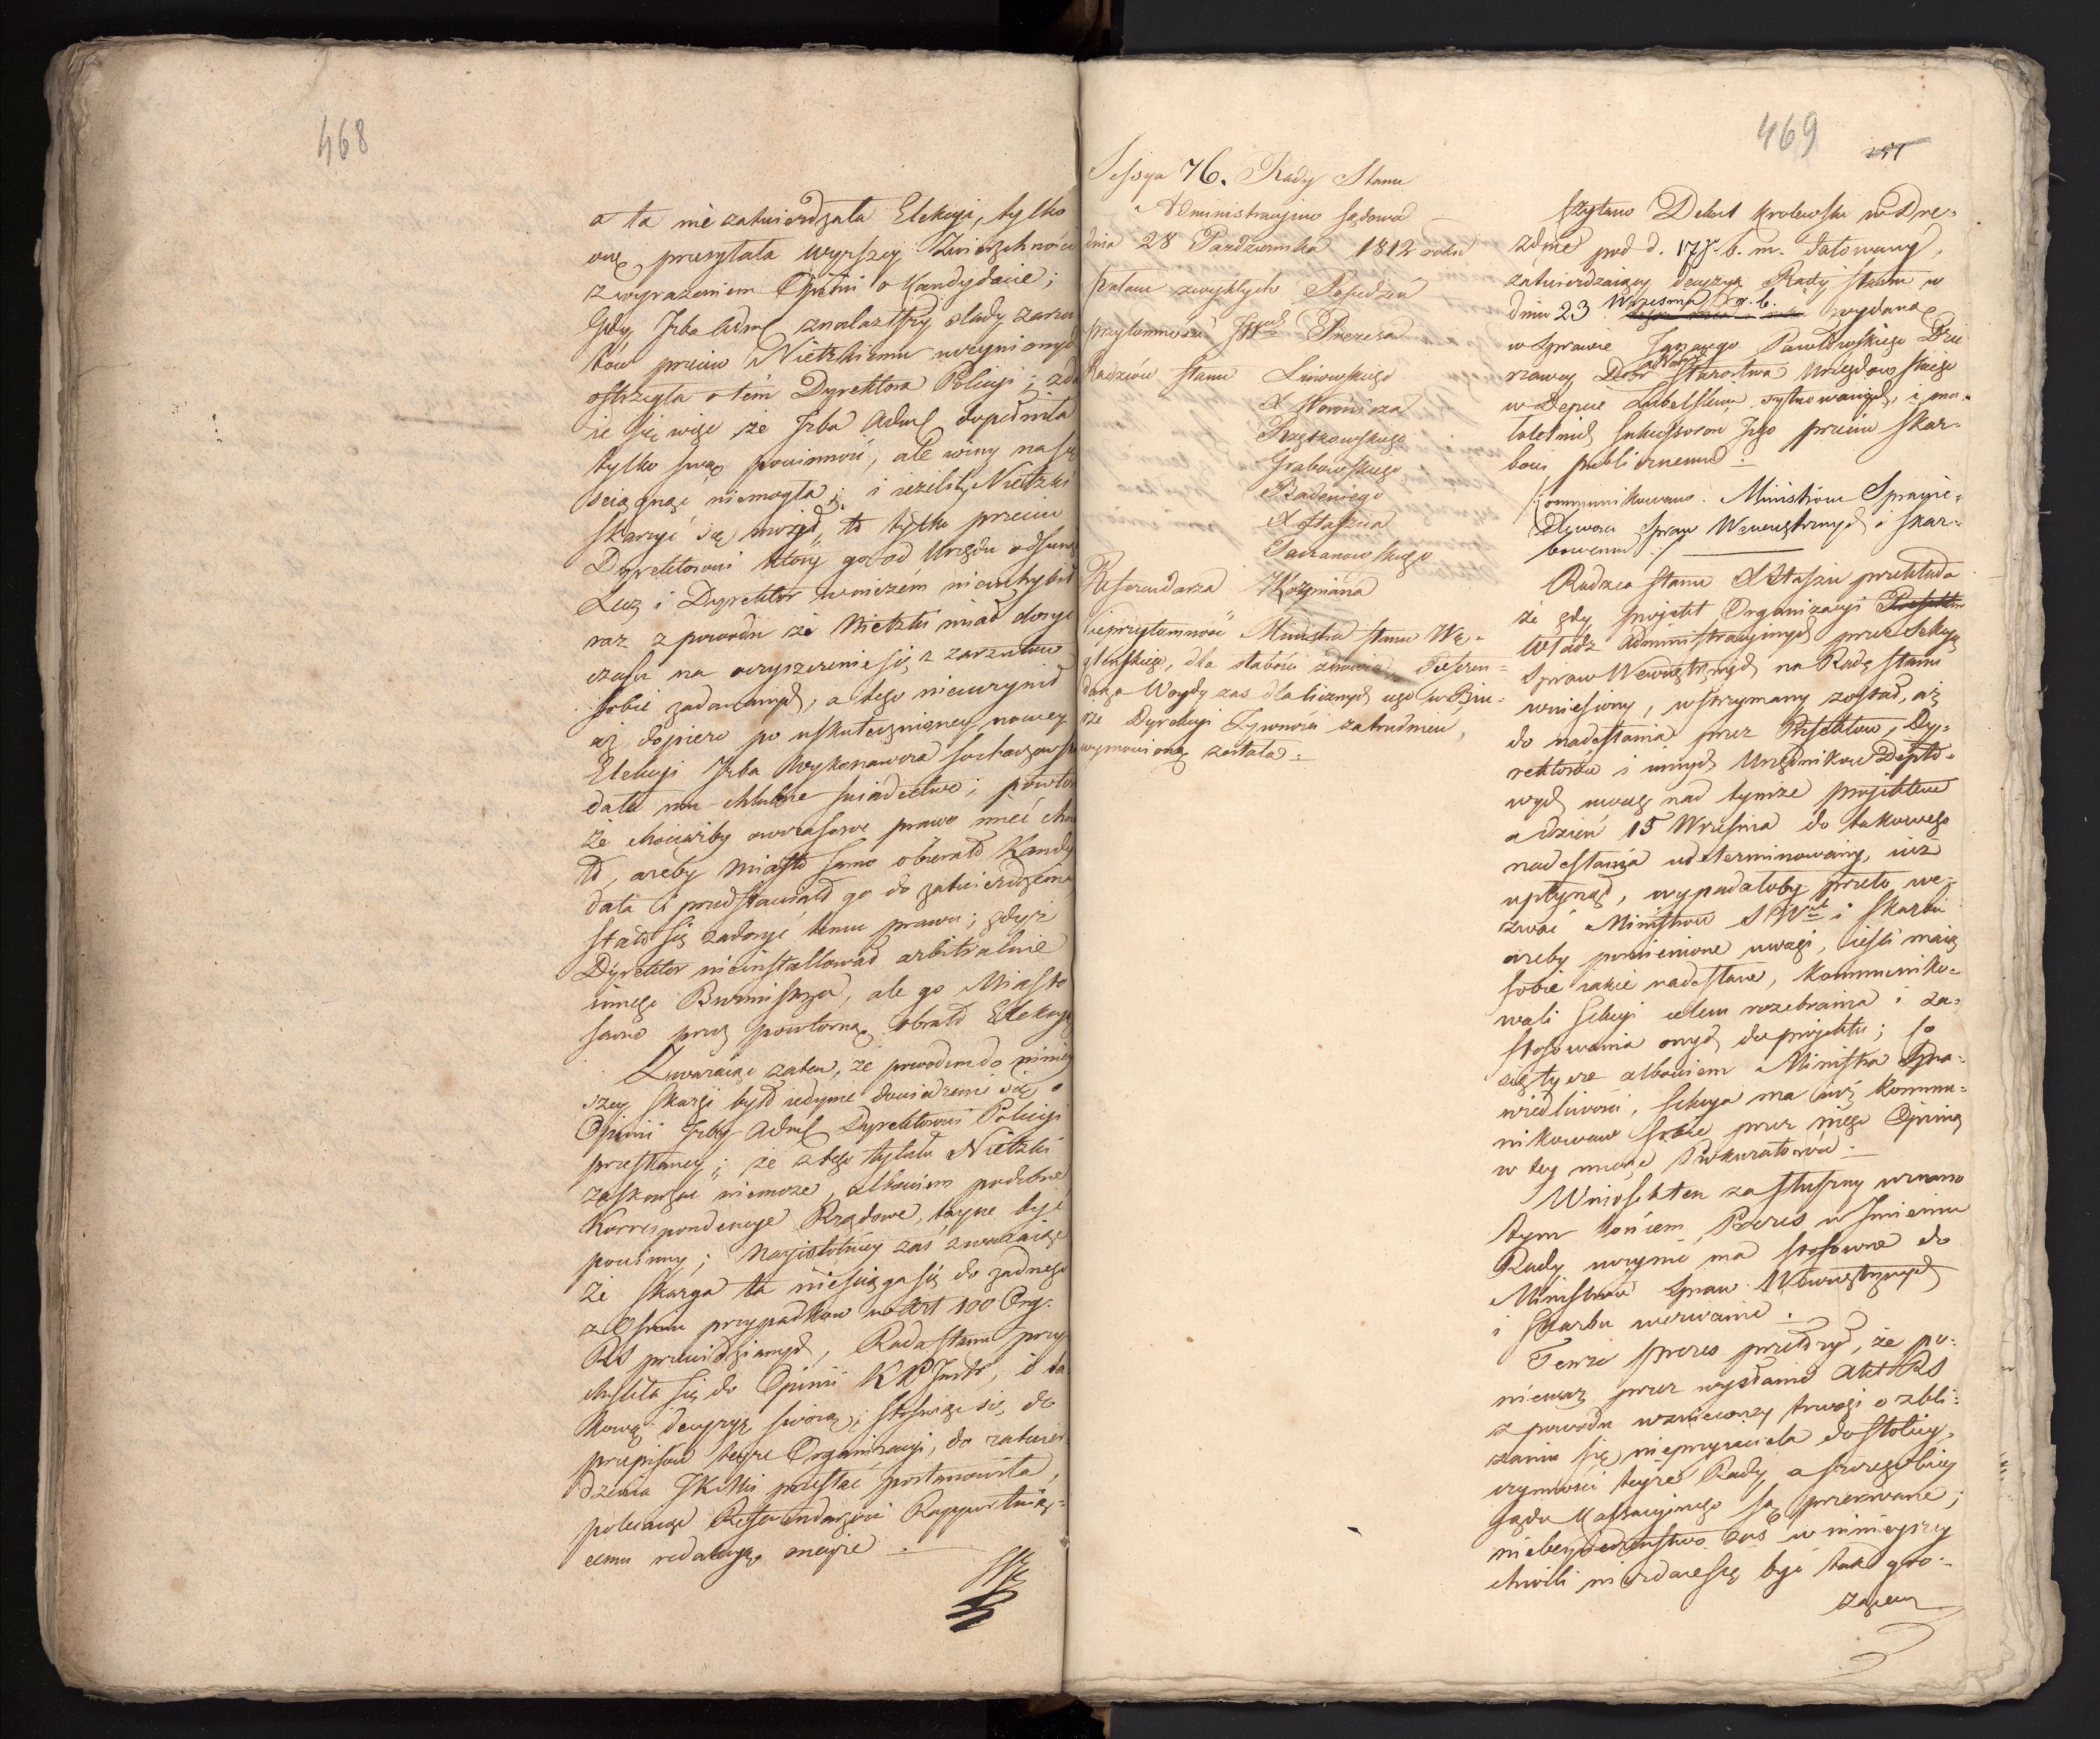 468
a ta nie zatwierdzała Elekcyi, tylko
onę przesyłała wyższey Zwierzchności
z wyrażeniem Opinii o Kandydacie;
Gdy Izba Adm znalazłszy slady zarzu
tów przeciw Nietzkiemu uczynionych
ostrzegła o tém Dyrektora Policyi; zda
ie się więc że Izba Adm dopełniła
tylko swą powinność, ale winy na się
sciągnąć niemogła; i ieżeliby Nietzki
skarżyć się mógł, to tylko przeciw
Dyrektorowi który go od Urzędu odsunął
Lecz i Dyrektor w niczém nieuchybił
raz z powodu że Nietzki miał dosyć
czasu na oczyszczenie się z zarzutów
sobie zadanych, a tego nieuczynił
aż dopiero po uskutecznioney nowey
Elekcyi Izba Wykonawcza Sochaczewska
dała mu chlubne świadectwo; powtóre
że chociażby owczasowe prawo mieć chcia
ło, ażeby Miasto samo obierało Kandy
data i przedstawiało go do zatwierdzenia
stało się zadosyć temu prawu; gdyż
Dyrektor nieinstallował arbitralnie
innego Burmistrza, ale go Miasto
samo przez powtórną obrało Elekcyą
Zważaiąc zatem, że powodem do niniey
szey skargi było iedynie dowiedzenie się o
Opinii Izby Adm Dyrektorowi Policyi
przesłaney; że z tego tytułu Nietzki
zaskarżać niemoże, albowiem podobne
Korrespondencye Rządowe, tayne być
powinny; Nayistotniey zaś zważaiąc
że skarga ta nieściąga się do żadnego
z Ośmiu przypadków w Art 100 Org.
RS przewidzianych, Rada Stanu przy
chyliła się do Opinii KP Instr, i ta
kową decyzyę swoią, stosuiąc się do
przepisów teyże Organizacyi, do zatwier
dzenia JKMci przesłać postanowiła,
polecaiąc Referendarzowi Rapportuią=
cemu redakcyę oneyże
469
251
Sessya 76. Rady Stanu
Administracyino Sądowa
dnia 28 Pazdziernika 1812 roku
w Pałacu zwykłych Posiedzeń
w przytomności JW Prezesa
Radzców Stanu Linowskiego
X Woronicza
Rzętkowskiego
Grabowskiego
Badeniego
X Staszica
Tarczanowskiego
Referendarza Koźmiana
Nieprzytomność Ministra Stanu Wę=
gleńskiego, dla słabości zdrowia, Referen=
darza Woydy zas dla licznych iego w Biu=
rze Dyrekcyi Żywności zatrudnień,
wymówioną została:
Czytano Dekret Królewski w Dre=
zdnie pod d. 17 b. m. datowany,
zatwierdzaiący decyzyą Rady Stanu w
dniu 23 Wrzesnia r. b. wydaną
w Sprawie Ignacego Pawłowskiego Dzie
rżawcy Dóbr Nar. Starostwa Urzędowskiego
w Depcie Lubelskim sytuowanych, i ma=
łoletnich sukcessorow Jego przeciw Skar=
bowi publicznemu.
Kommunikowano: Ministrom Sprawie=
dliwości Spraw Wewnętrznych i Skar=
bowemu
Radzca Stanu X Staszic przekłada
że gdy proiekt Organizacyi
Władz Administracyinych przez Sekcyą
Spraw Wewnętrznych na Radę Stanu
wniesiony, wstrzymany został, aż
do nadesłania przez Prefektow, Dy=
rektorów i innych Urzędnikow Depto=
wych uwag nad tymże proiektem
a dzień 15 Wrzesnia do takowego
nadesłania udeterminowany, iuż
upłynął, wypadałoby przeto we=
zwać Ministrow SW i Skarbu
ażeby pomienione uwagi, ieśli maią
sobie iakie nadesłane, kommuniko=
wali Sekcyi celem rozebrania i za=
stosowania onych do proiektu; co
się tycze albowiem Ministra Spra=
wiedliwości, Sekcya ma iuż kommu=
nikowane sobie przez niego Opinią
w tey mierze Prokuratorów.
Wniosek ten za słuszny uznano
tym końcem, Prezes w Imieniu
Rady uczynić ma stosowne do
Ministrów Spraw Wewnętrznych
i Skarbu wezwanie.
Tenże Prezes przełożył, że po=
nieważ przez wysłanie Akt RS
z powodu wznieconey trwogi o zbli=
żaniu się nieprzyiaciela do Stolicy,
czynności teyże Rady, a szczególniey
Sądu Kassacyinego są przerwane;
niebezpieczeństwo zaś w ninieyszey
chwili niezdaie się być tak gro=
żącem